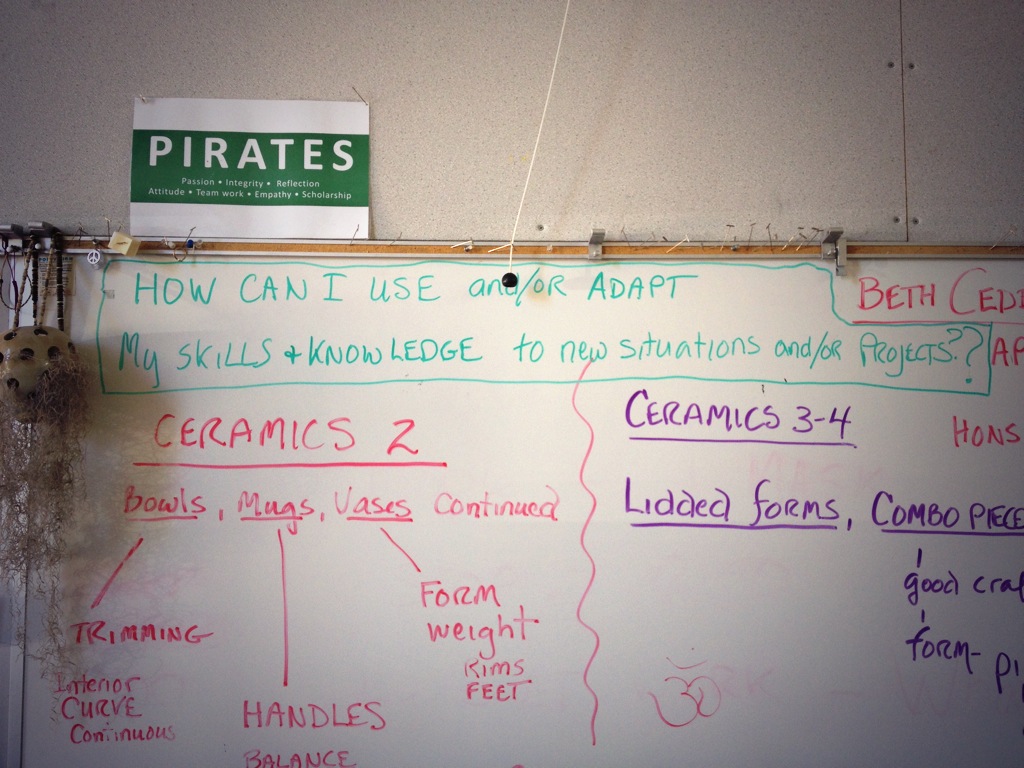 PIRATES
Passion • Integrity • Reflection
Attitude • Team work • Empathy • Scholarship
HOW CAN I USE and/OR ADAPT
My SKILLS + KNOWLEDGE to new situations and/or PROJECTS??
BETH CEDI
AP
HONS
CERAMICS 2
Bowls, Mugs, Vases continued
TRIMMING
Interior
CURVE
Continuous
HANDLES
BALANCE
FORM
weight
RIMS
FEET
CERAMICS 3-4
Lidded forms, COMBO PIECE
good craf
form-
pi
ॐ